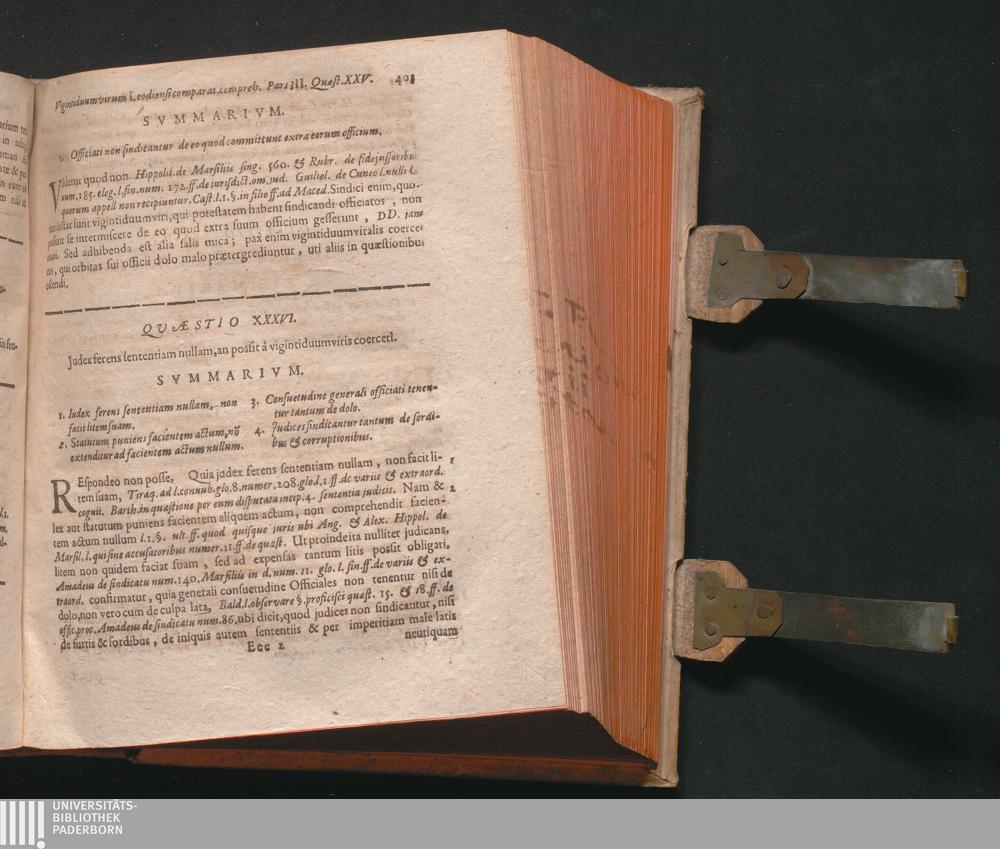 Vigintiduumvirum Leodiensi comparat. compreh. Pars III. Quæst. XXV. 403
SVMMARIVM.
1. Officiati non sindicantur de eo quod committunt extra eorum officium.
Videtur quod non. Hippolit. de Marsiliis sing. 560. & Rubr. de fidejussoribus
num. 185. eleg. l. fin. num. 172. ff. de jurisdict. om. jud. Guiliel. de Cuneo l. nulli C
quorum appell non recipiuntur. Cast. l. 1. §. in filio ff. ad Maced. Sindici enim, quo-
instar sunt vigintiduumviri, qui potestatem habent sindicandi officiatos, non
possunt se intermiscere de eo quod extra suum officium gesserunt, DD. jam
citati. Sed adhibenda est alia salis mica; pax enim vigintiduumviralis coercet
eos, qui orbitas sui officii dolo malo prætergrediuntur, uti aliis in quæstionibus
ostendi.
QUÆSTIO XXXVI.
Judex ferens sententiam nullam, an possit à vigintiduumviris coerceri.
SVMMARIVM.
1. Iudex ferens sententiam nullam, non
facit litem suam.
2. Statutum puniens facientem actum, nō
extenditur ad facientem actum nullum.
3. Consuetudine generali officiati tenen-
tur tantum de dolo.
4. Judices sindicantur tantum de sordi-
bus & corruptionibus.
REspondeo non posse, Quia judex ferens sententiam nullam, non facit li- 1
tem suam, Tiraq. ad l. connub. glo. 8. numer. 208. glo. l. 1. ff. de variis & extraord.
cognit. Barth. in quæstione per eum disputata incip. 4. sententia judicis. Nam & 2
lex aut statutum puniens facientem aliquem actum, non comprehendit facien-
tem actum nullum l. 1. §. ult. ff. quod quisque juris ubi Ang. & Alex. Hippol. de
Marsil. l. qui sine accusatoribus numer. 11. ff. de quæst. Ut proinde ita nulliter judicans,
litem non quidem faciat suam, sed ad expensas tantum litis possit obligari,
Amadeus de sindicatu num. 140. Marsiliis in d. num. 11. glo. l. fin. ff. de variis & ex-
traord. confirmatur, quia generali consuetudine Officiales non tenentur nisi de
dolo, non vero cum de culpa lata, Bald. l. observare §. proficisci quæst. 15. & 18. ff. de
offic. proc. Amadeus de sindicatu num. 86. ubi dicit, quod judices non sindicantur, nisi
de furtis & sordibus, de iniquis autem sententiis & per imperitiam male latis
Eee 2 neutiquam
UNIVERSITÄTS-
BIBLIOTHEK
PADERBORN